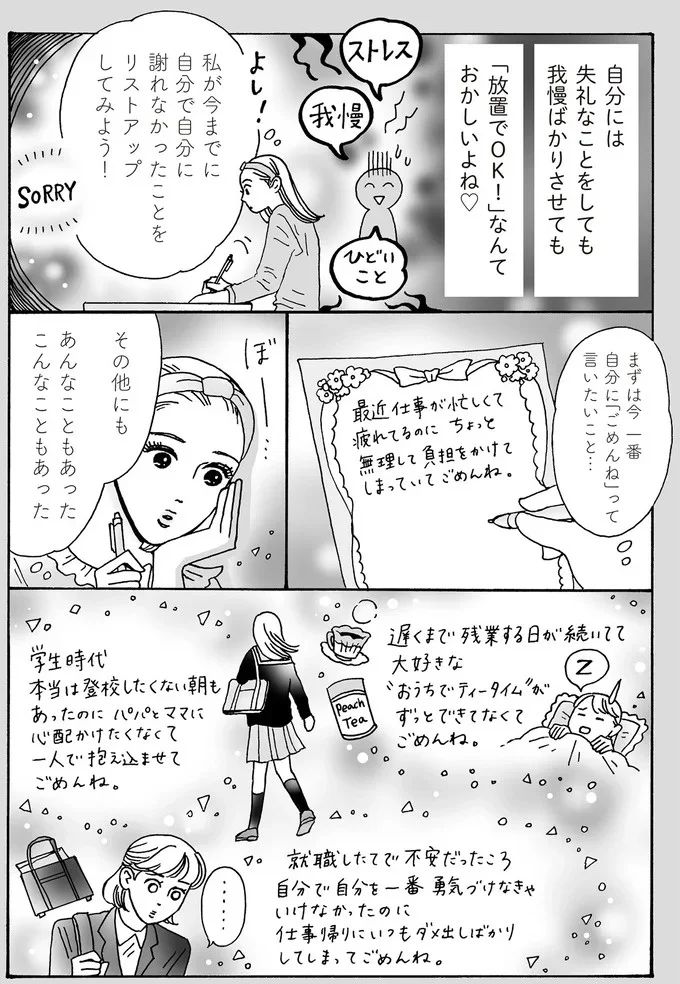 自分には
失礼なことをしても
我慢ばかりさせても
「放置でOK!」なんて
おかしいよね♡
ストレス
我慢
ひどい
こと
よし!
私が今までに
自分で自分に
謝れなかったことを
リストアップ
してみよう!
SORRY
まずは今一番
自分に「ごめんね」って
言いたいこと…
最近仕事が忙しくて
疲れてるのに ちょっと
無理して負担をかけて
しまっていてごめんね。
ぼーー…
その他にも
あんなこともあった
こんなこともあった
遅くまで残業する日が続いてて
大好きな
“おうちでティータイム”が
ずっとできてなくて
ごめんね。
Peach
Tea
Z
学生時代
本当は登校したくない朝も
あったのに パパとママに
心配かけたくなくて
一人で抱え込ませて
ごめんね。
就職したてで不安だったころ
自分で自分を一番勇気づけなきゃ
いけなかったのに
仕事帰りにいつもダメ出しばかり
してしまってごめんね。
・・・・・